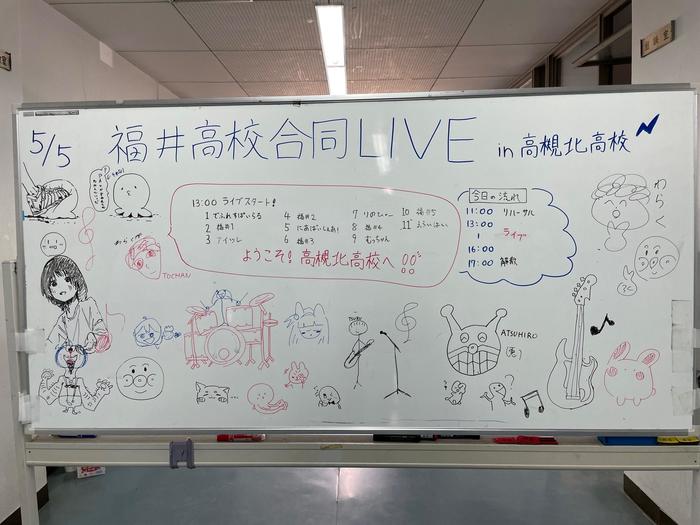 5/5 福井高校合同LIVE in 高槻北高校
13:00 ライブスタート!
1 でふれすぱいらる
2 福井#1
3 アイッシ
4 福井#2
5 にあぱいしぇあ!
6 福井#3
7 りのひゅー
8 福井#4
9 むっちゃん
10 福井#5
11 えらいはい
ようこそ! 高槻北高校へ!!
今日の流れ
11:00 リハーサル
13:00
ライブ
16:00
17:00 解散
わらく
TOCHAN
ATSUHIRO